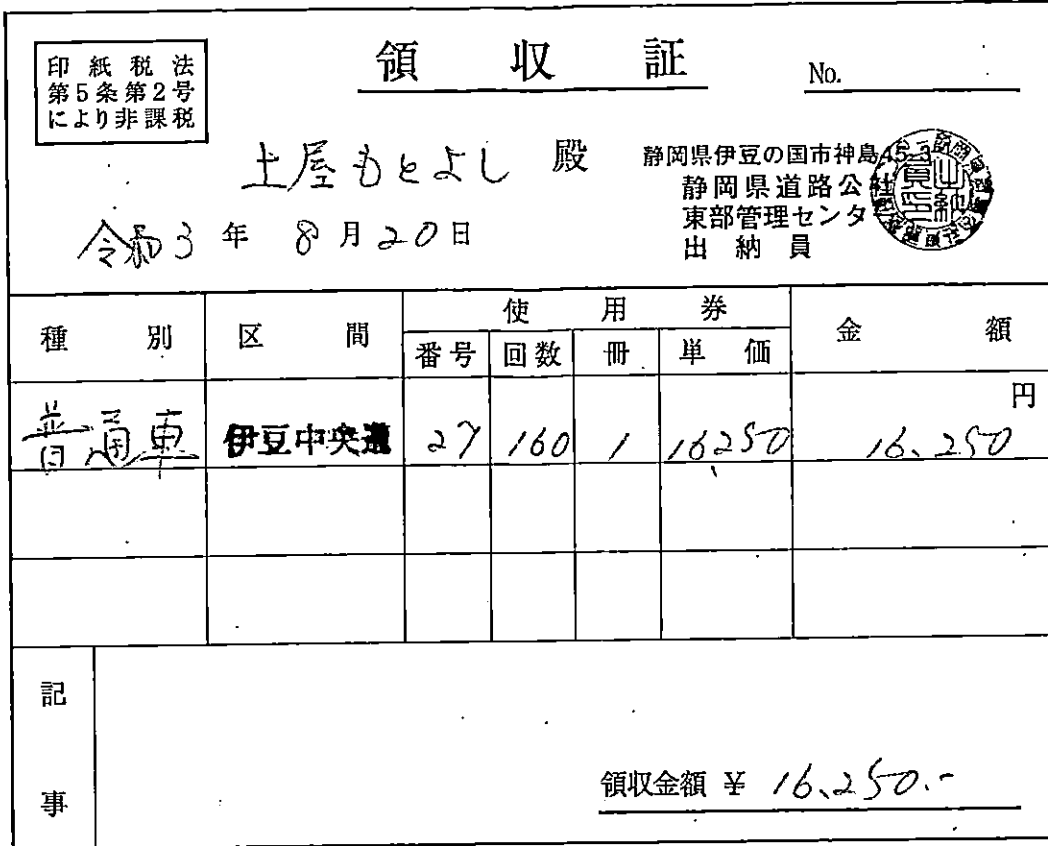 印紙税法
第5条第2号
により非課税
領収証
No.
土屋もとよし 殿
令和3年8月20日
静岡県伊豆の国市神島45-3
静岡県道路公社
東部管理センター
出納員
種別 区間 使用券 金額
番号 回数 冊 単価
円
普通車 伊豆中央道 27 160 1 16250 16,250
記事
領収金額 ¥ 16,250.-